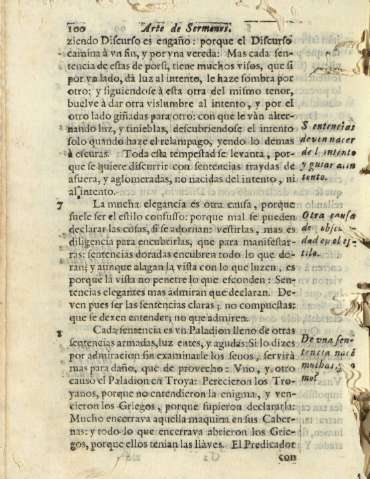 100 Arte de Sermones.
ziendo Discurso es engaño: porque el Discurso
camina à vn fin, y por vna vereda: Mas cada sen-
tencia de estas de porsi, tiene muchos visos, que si
por vn lado, dà luz al intento, le haze sombra por
otro; y siguiendose à esta otra del mismo tenor,
buelve à dar otra vislumbre al intento, y por el
otro lado giñadas para otro: con que le vàn alter-
nando luz, y tinieblas, descubriendose el intento
solo quando haze el relampago, yendo lo demas
à escuras. Toda esta tempestad se levanta, por-
que se quiere discurrir con sentencias traydas de
afuera, y aglomeradas, no nacidas del intento, ni
al intento.
Sentencias
deven nacer
del intento
y guiar al in
tento.
7 La mucha elegancia es otra causa, porque
suele ser el estilo confusso: porque mal se pueden
declarar las cosas, si se adornan: vestirlas, mas es
diligencia para encubrirlas, que para manifestar-
las: sentencias doradas encubren todo lo que do-
ran; y aunque alagan la vista con lo que luzen, es
porque la vista no penetre lo que esconden: Sen-
tencias elegantes mas admiran que declaran. De-
ven pues ser las sentencias claras, no compuestas;
que se deven entender; no que admiren.
Otra causa
de obscu
dad en el es-
tilo.
8 Cada sentencia es vn Paladion lleno de otras
sentencias armadas, luz entes, y agudas: Si lo dizes
por admiracion sin examinarle los senos, servirà
mas para daño, que de provecho: Vno, y otro
causò el Paladion en Troya: Perecieron los Tro-
yanos, porque no entendieron la enigma, y ven-
cieron los Griegos, porque supieron declararla:
Mucho encerrava aquella maquina en sus Caber-
nas: y todo lo que encerrava abrieron los Grie-
gos, porque ellos tenian las llaves. El Predicador
con
De vna sen-
tencia nacē
muchas,